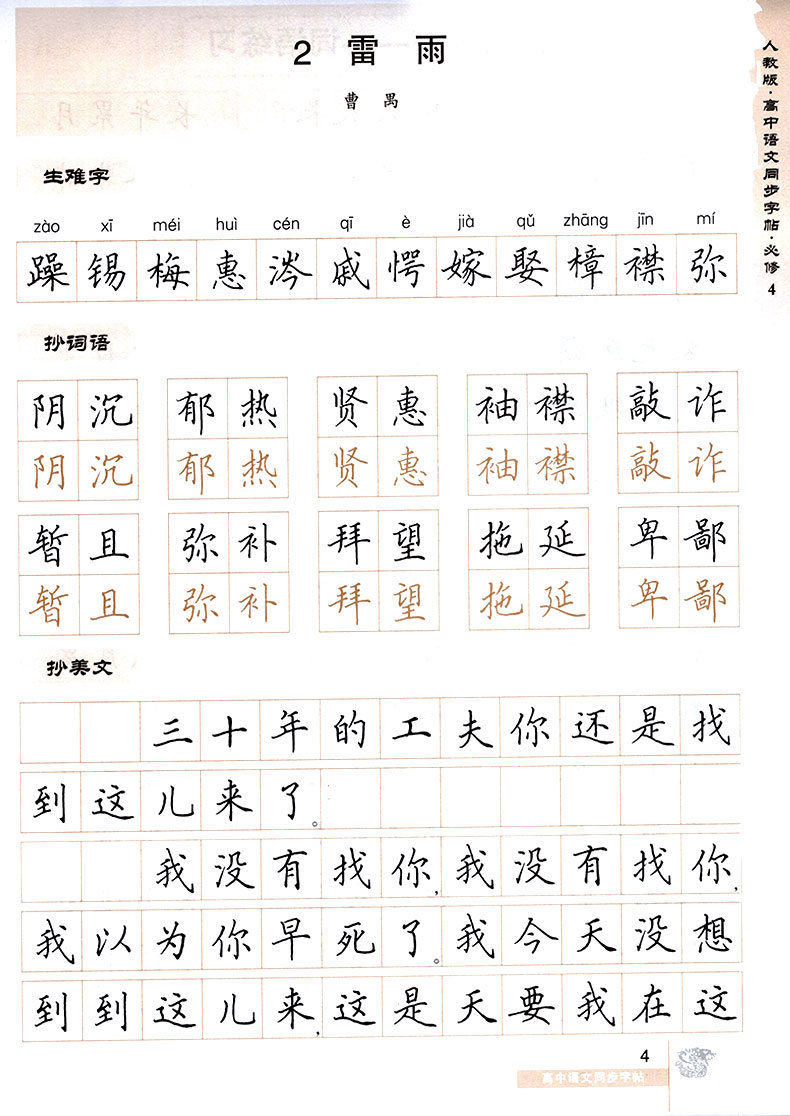 2 雷 雨
曹 禺
人教版·高中语文同步字帖·必修4
生难字
zào xī méi huì cén qī è jià qǔ zhāng jīn mí
躁 锡 梅 惠 涔 戚 愕 嫁 娶 樟 襟 弥
抄词语
阴沉 郁热 贤惠 袖襟 敲诈
阴沉 郁热 贤惠 袖襟 敲诈
暂且 弥补 拜望 拖延 卑鄙
暂且 弥补 拜望 拖延 卑鄙
抄美文
三十年的工夫你还是找
到这儿来了。
我没有找你,我没有找你,
我以为你早死了。我今天没想
到到这儿来,这是天要我在这
4
高中语文同步字帖